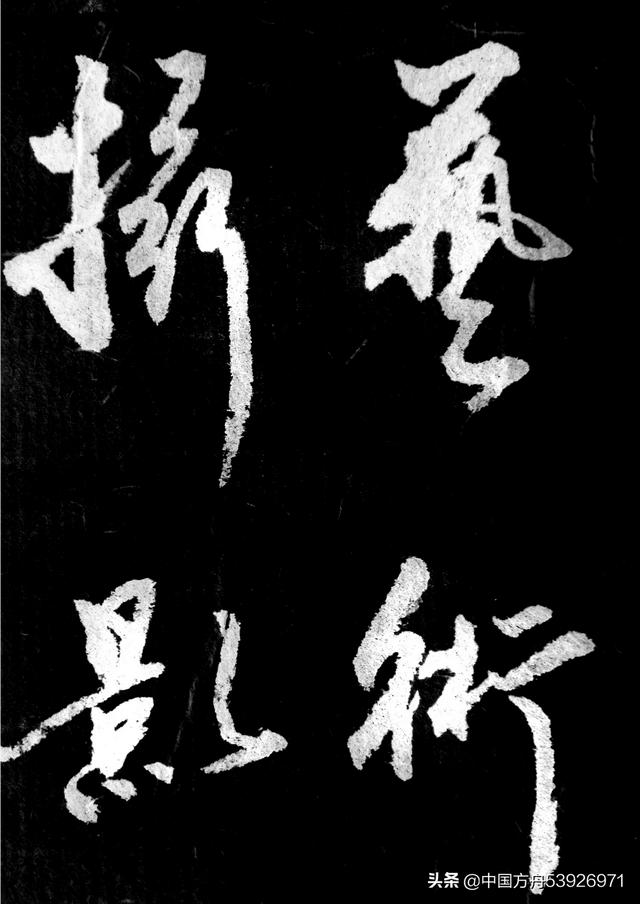 藝術
攝影
头条 @中国方舟53926971